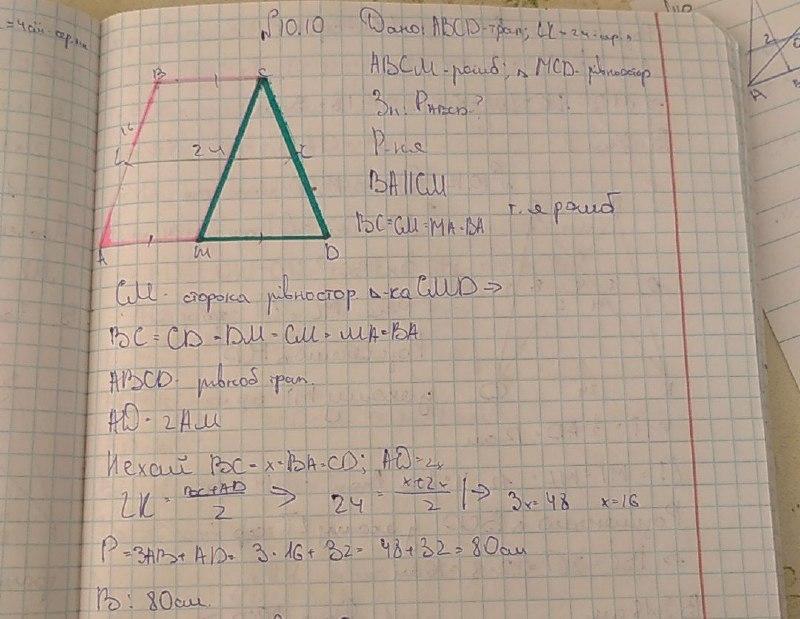 = 4см - сер. лін
№10.10 Дано: ABCD - трап; LK = 24 - сер. л
ABCM - ромб; Δ MCD - рівностор
Зн: P ABCD - ?
Р-ня
BA || CM
BC = CM = MA = BA т. я ромб
B C
16
L 24 K
A M D
2
A
CM - сторона рівностор Δ-ка CMD ⇒
BC = CD = DM = CM = MA = BA
ABCD - рівноб трап.
AD = 2AM
Нехай BC = x = BA = CD; AD = 2x
LK = BC + AD / 2 ⇒ 24 = x + 2x / 2 | ⇒ 3x = 48 x = 16
P = 3AB + AD = 3 · 16 + 32 = 48 + 32 = 80см
В: 80см.